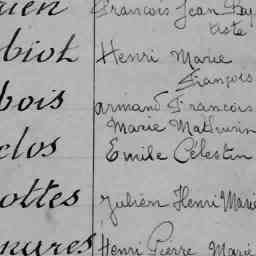 rien François Jean Bap
tiste
biot Henri Marie
François
bois Armand François
Marie Mathurin
clos Emile Célestin
ottes Julien Henri Marie
nures Henri Pierre Marie